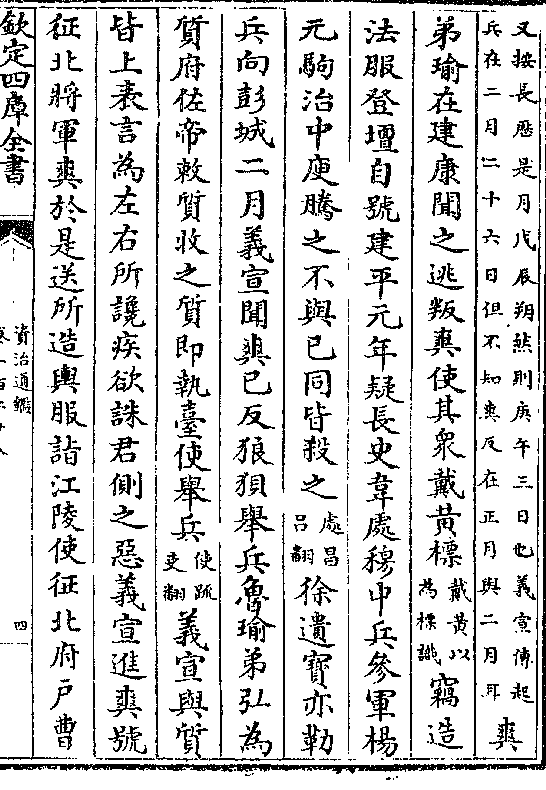 又按長厯是月戊辰朔然則庚午三日也義宣傳起
兵在二月二十六日但不知爽反在正月與二月耳
爽
弟瑜在建康聞之逃叛爽使其衆戴黄標戴黄以為標識竊造
法服登壇自號建平元年疑長史韋處穆中兵參軍楊
元駒治中庾騰之不與已同皆殺之處昌呂翻徐遺寶亦勒
兵向彭城二月義宣聞爽已反狼狽舉兵魯瑜弟弘為
質府佐帝敕質收之質即執臺使舉兵使疏吏翻義宣與質
皆上表言為左右所讒疾欲誅君側之惡義宣進爽號
征北將軍爽於是送所造輿服詣江陵使征北府戶曹
欽定四庫全書
資治通鑑
四